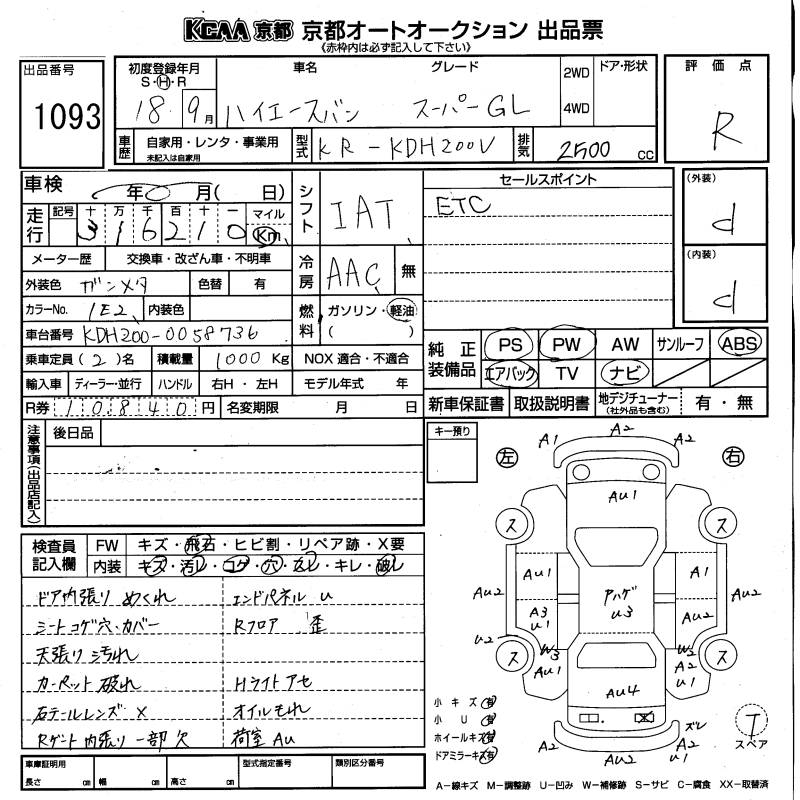 KCAA 京都 京都オートオークション 出品票
《赤枠内は必ず記入して下さい》
出品番号
1093
初度登録年月 S・H・R
18 9月
車名
ハイエースバン
グレード
スーパーGL
2WD
4WD
ドア・形状
評価点
R
車歴 自家用・レンタ・事業用
未記入は自家用
型式 KR-KDH200V
排気 2500 cc
車検 年 月( 日)
走行 記号 十 万 千 百 十 一 マイル
316210 Km
メーター歴 交換車・改ざん車・不明車
外装色 ガンメタ 色替 有
カラーNo. 1E2 内装色
車台番号 KDH200-0058736
乗車定員 (2)名 積載量 1000 Kg
輸入車 ディーラー・並行 ハンドル 右H・左H
R券 10840円 名変期限 月 日
シフト IAT
冷房 AAC 無
燃料 ガソリン・軽油
( )
NOX 適合・不適合
モデル年式 年
セールスポイント
ETC
(外装)
d
(内装)
d
純正装備品 PS PW AW サンルーフ ABS
エアバック TV ナビ
新車保証書 取扱説明書 地デジチューナー(社外品も含む) 有・無
注意事項(出品店記入)
後日品
キー預り
検査員記入欄 FW キズ・飛石・ヒビ割・リペア跡・X要
内装 キズ・汚レ・コゲ・穴・ズレ・キレ・破レ
ドア内張り めくれ エンドパネル U
シートコゲ穴・カバー Rフロア 歪
天張り汚れ
カーペット 破れ Hライト アセ
右テールレンズ X オイルもれ
Rゲート内張り一部欠 荷室 AU
車庫証明用 長さ cm 幅 cm 高さ cm
型式指定番号
類別区分番号
左 右
A1 A2 A2
AU1
ス ス
AU1 A1
AU2 AU2
アハゲ
U3
A3 U1 AU2
U2 W3 W2
ス ス
AU1 A2 U1
AU4
小キズ 有
小U 有
ホイールキズ 有
ドアミラーキズ 有
A2 AU2 A2 U1 ズレ
T
スペア
A－線キズ M－調整跡 U－凹み W－補修跡 S－サビ C－腐食 XX－取替済